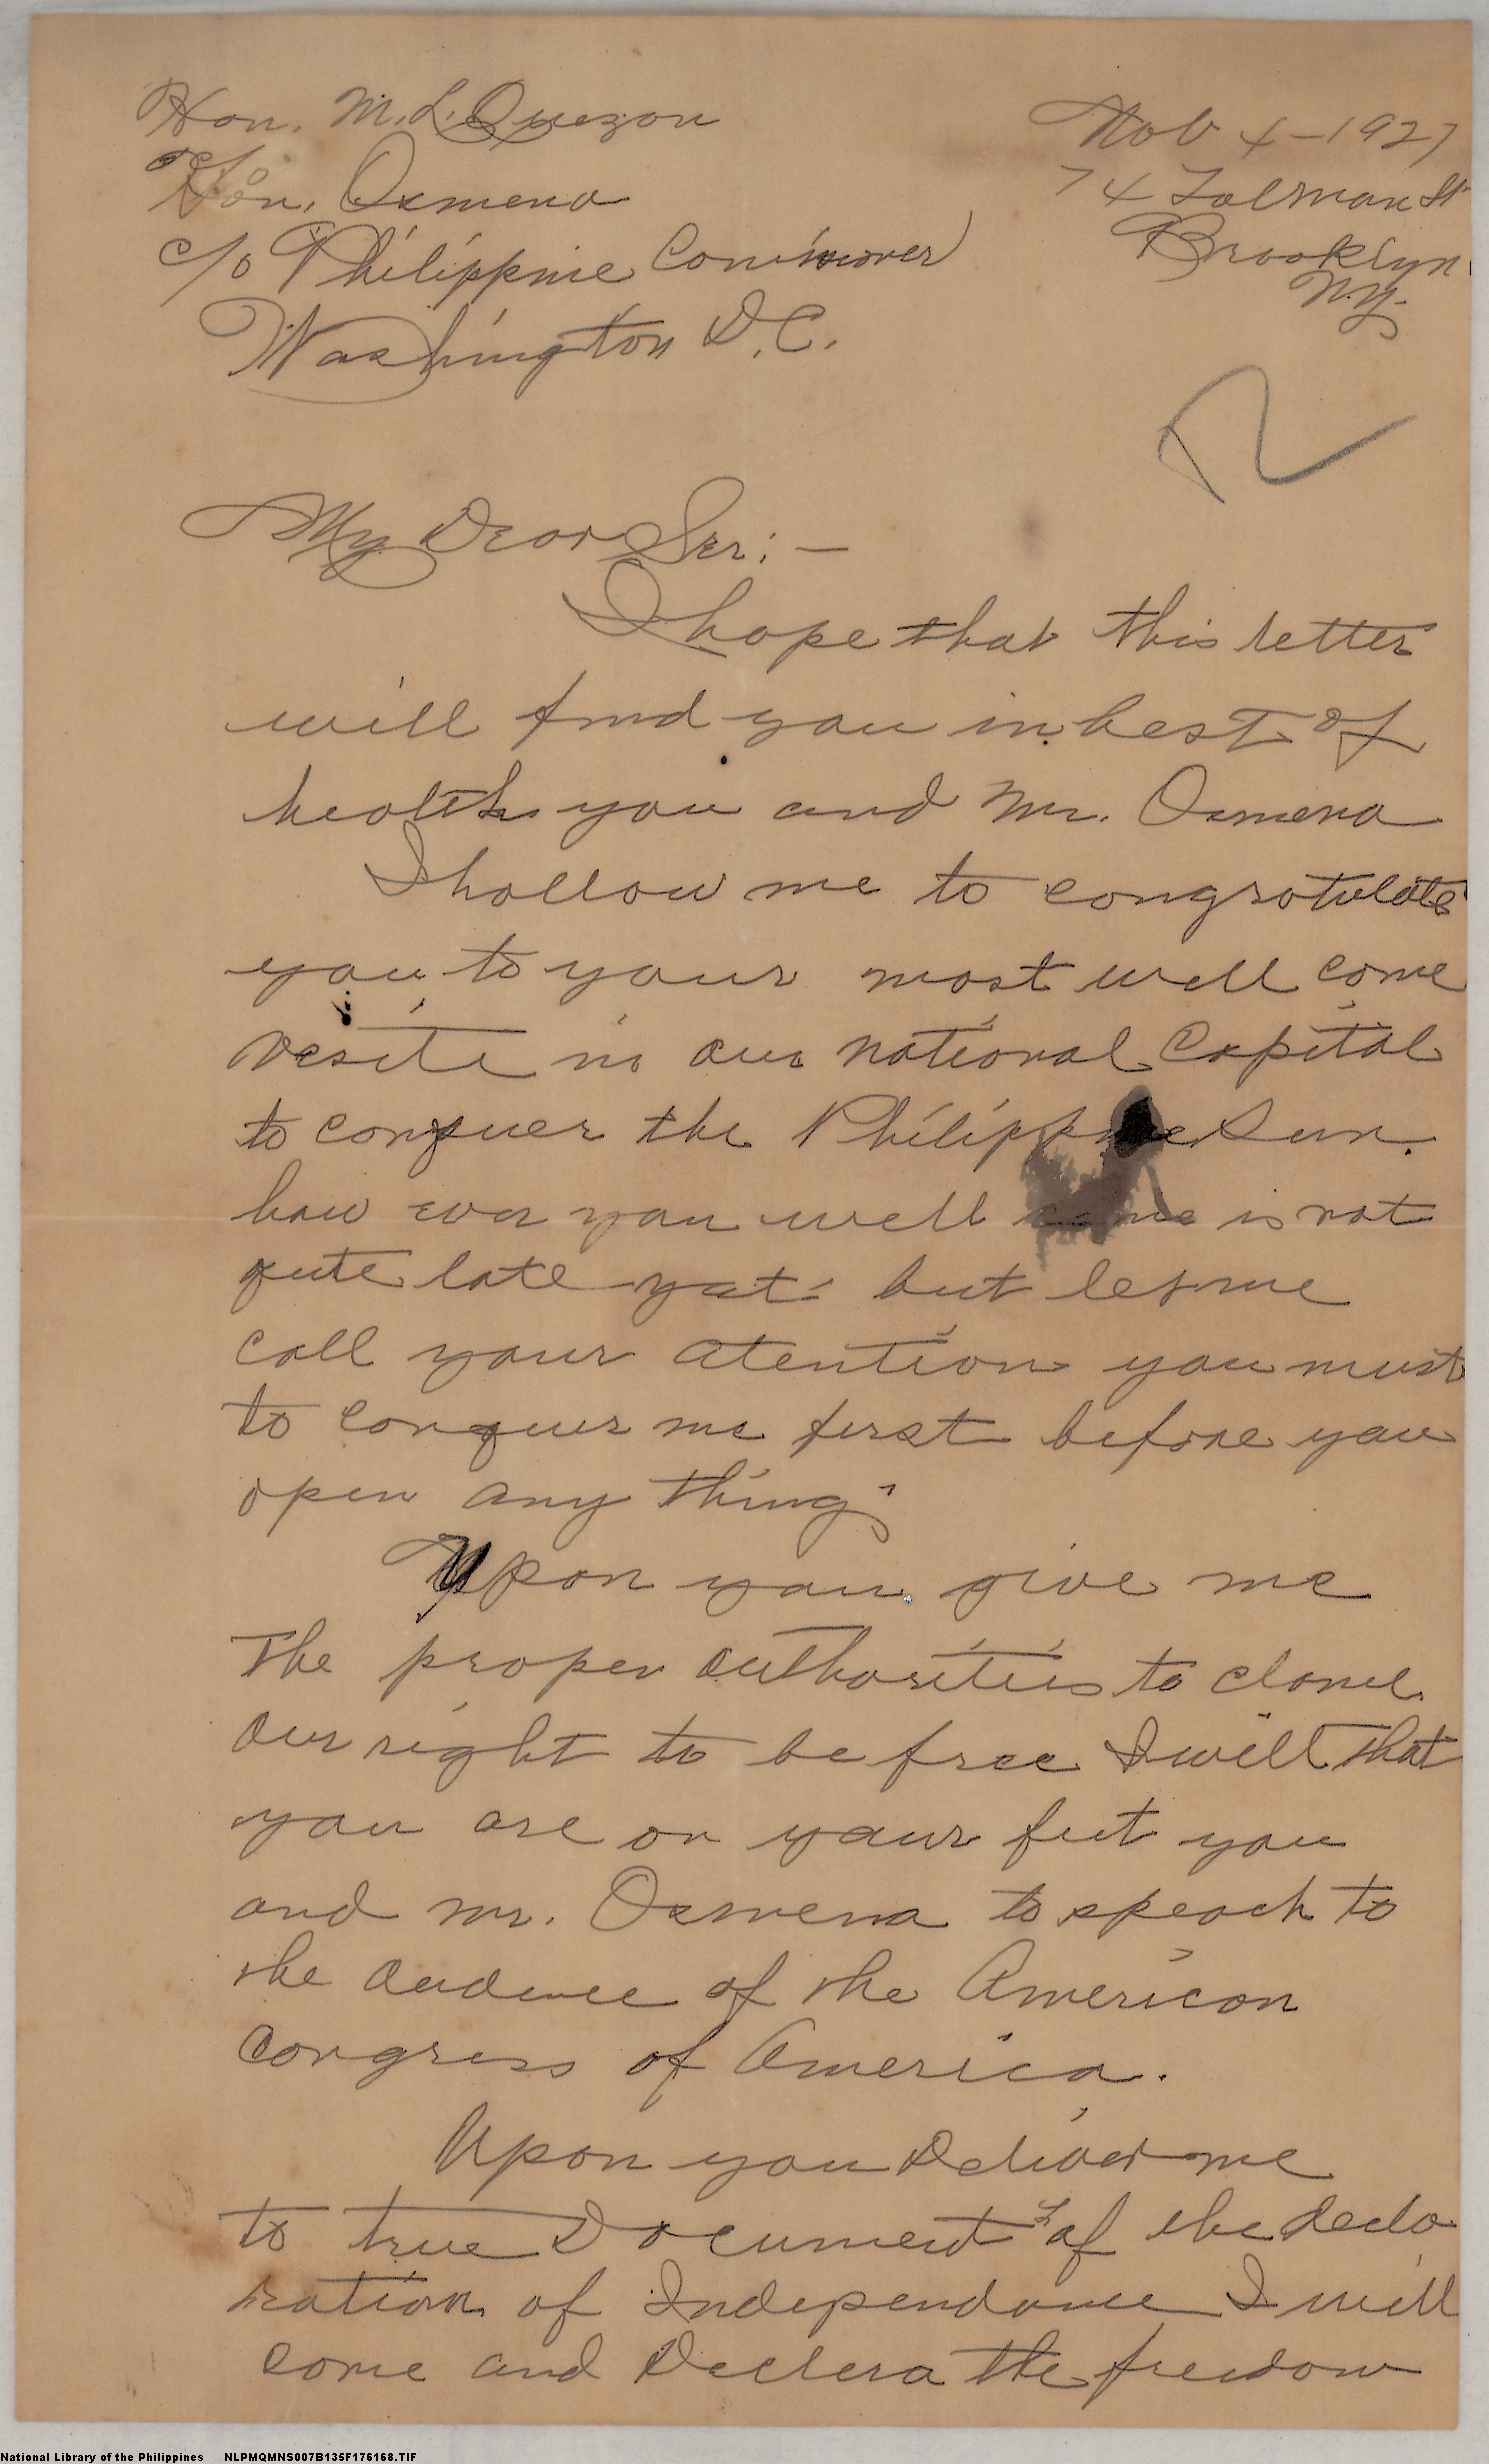 Hon. M. L. Quezon
Nov 4 - 1927
Hon. Osmena
74 Talman St
c/o Philippine
Brooklyn
N.Y.
Washington D.C.
My Dear Ser: —
I hope that this letter
will find you in best of
health you and Mr. Osmena
I hollow me to congratulate
you to your most well come
vesite in our national Capital
to conquer the Philippine Sun.
how ever you well come is not
quite late yat. but let me
call your atention you must
to conquer me first before you
open any thing;
Upon you give me
the proper authorities to
our right to be free I will that
you are on your feet you
and Mr. Osmena to speach to
the audience of the American
Congress of America.
Upon you Deliver me
to true Documents of the decla
ration of Independance I will
come and Declera the freedom
National Library of the Philippines NLPMQMNS007B135F176168.TIF